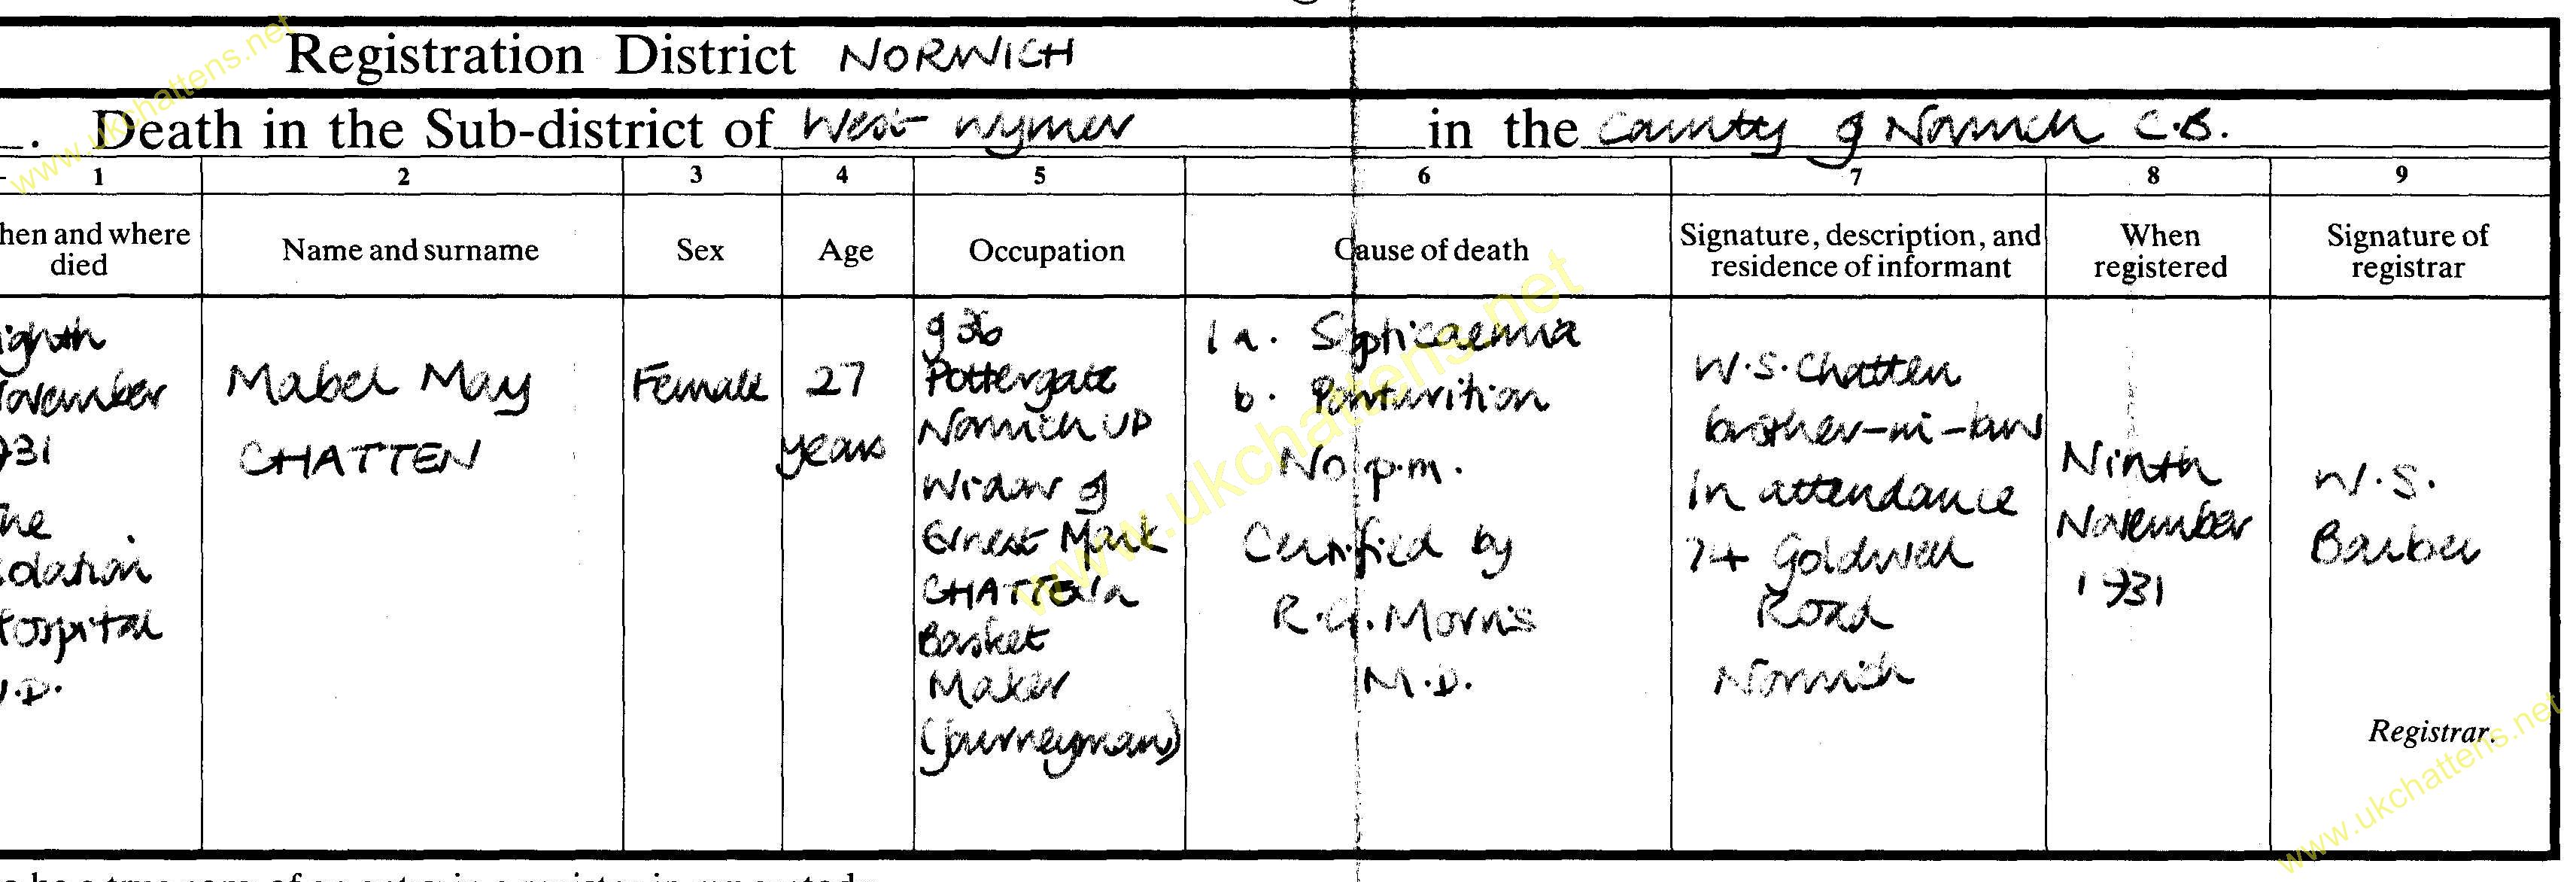 Registration District NORWICH
Death in the Sub-district of West Wymer in the County of Norwich C.B.
1 2 3 4 5 6 7 8 9
hen and where died
Name and surname
Sex
Age
Occupation
Cause of death
Signature, description, and residence of informant
When registered
Signature of registrar
ighth
ovember
931
he
olation
ospital
.D.
Mabel May
CHATTEN
Female
27
years
of 36
Pottergate
Norwich UD
Widow of
Ernest Mark
CHATTEN a
Basket
Maker
(journeyman)
1a. Septicaemia
b. Parturition
No p.m.
Certified by
R.G. Morris
M.D.
W.S. Chatten
brother-in-law
In attendance
74 Goldwell
Road
Norwich
Ninth
November
1931
W.S.
Barber
Registrar.
www.ukchattens.net
www.ukchattens.net
www.ukchattens.net